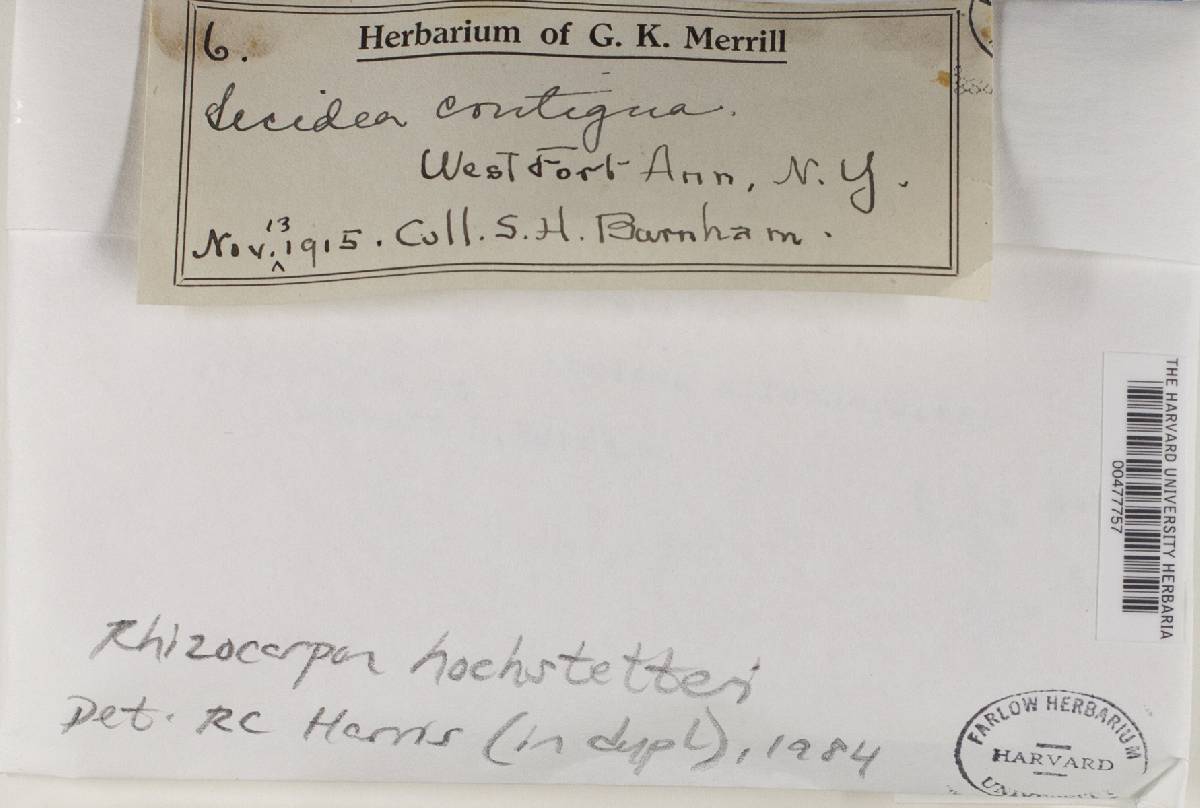 6.
Herbarium of G. K. Merrill
Lecidea contigua.
West Fort Ann, N. Y.
Nov. 13 1915. Coll. S. H. Burnham.
THE HARVARD UNIVERSITY HERBARIA
00477757
Rhizocarpon hochstetteri
Det. RC Harris (in dupl), 1984
FARLOW HERBARIUM
HARVARD